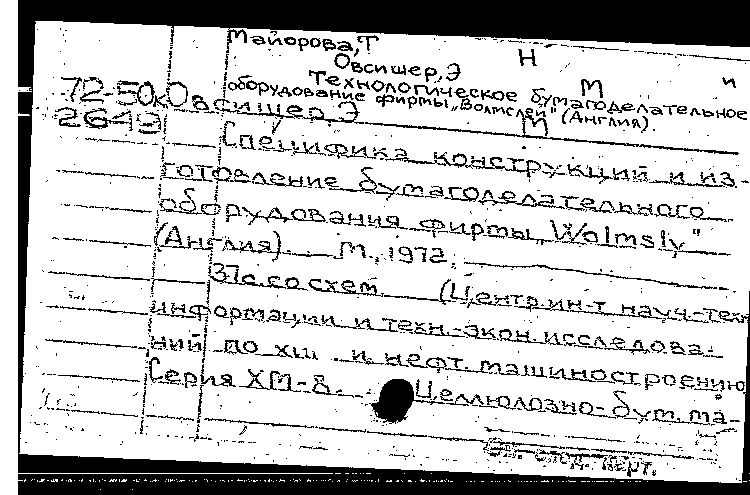 Майорова, Т
Овсишер, Э
Н
Технологическое бумагоделательное
оборудование фирмы „Волмслей" (Англия).
72-50к
2649
Овсищер Э
М
М
и
Специфика конструкций и из-
готовление бумагоделательного
оборудования фирмы „Walmsly"
(Англия). М., 1972.
37с. со схем. (Центр. ин-т науч.-техн
информации и техн.-экон. исследова-
ний по хим. и нефт. машиностроению
Серия ХМ-8. Целлюлозно-бум. ма-
См. след. карт.